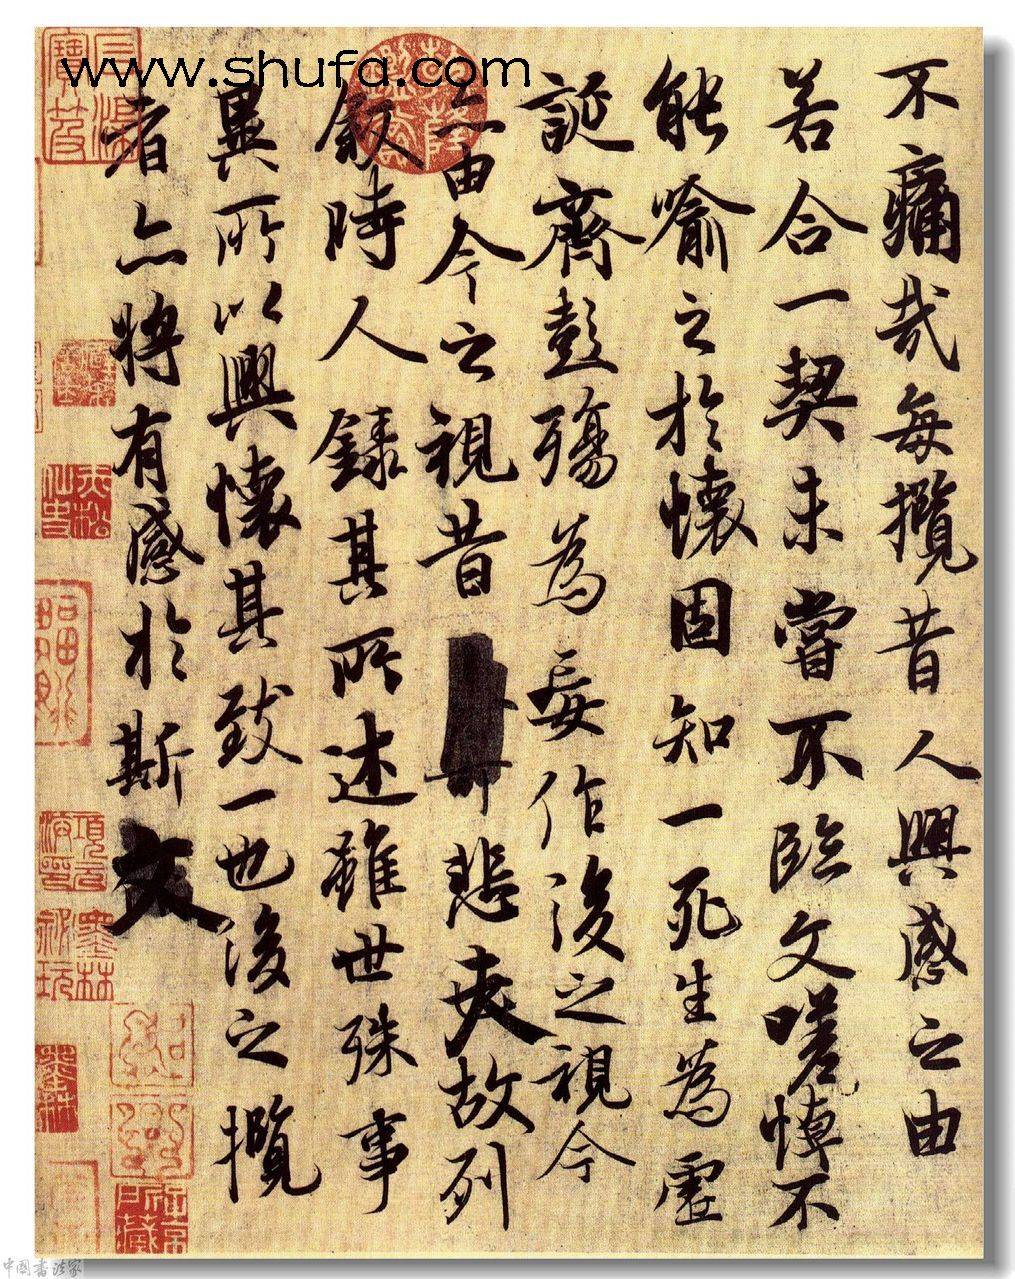 www.shufa.com
不痛哉每攬昔人興感之由
若合一契未嘗不臨文嗟悼不
能喻之於懷固知一死生為虛
誕齊彭殤為妄作後之視今
亦由今之視昔悲夫故列
敘時人錄其所述雖世殊事
異所以興懷其致一也後之攬
者亦將有感於斯文
墨林秘玩
中國書法家